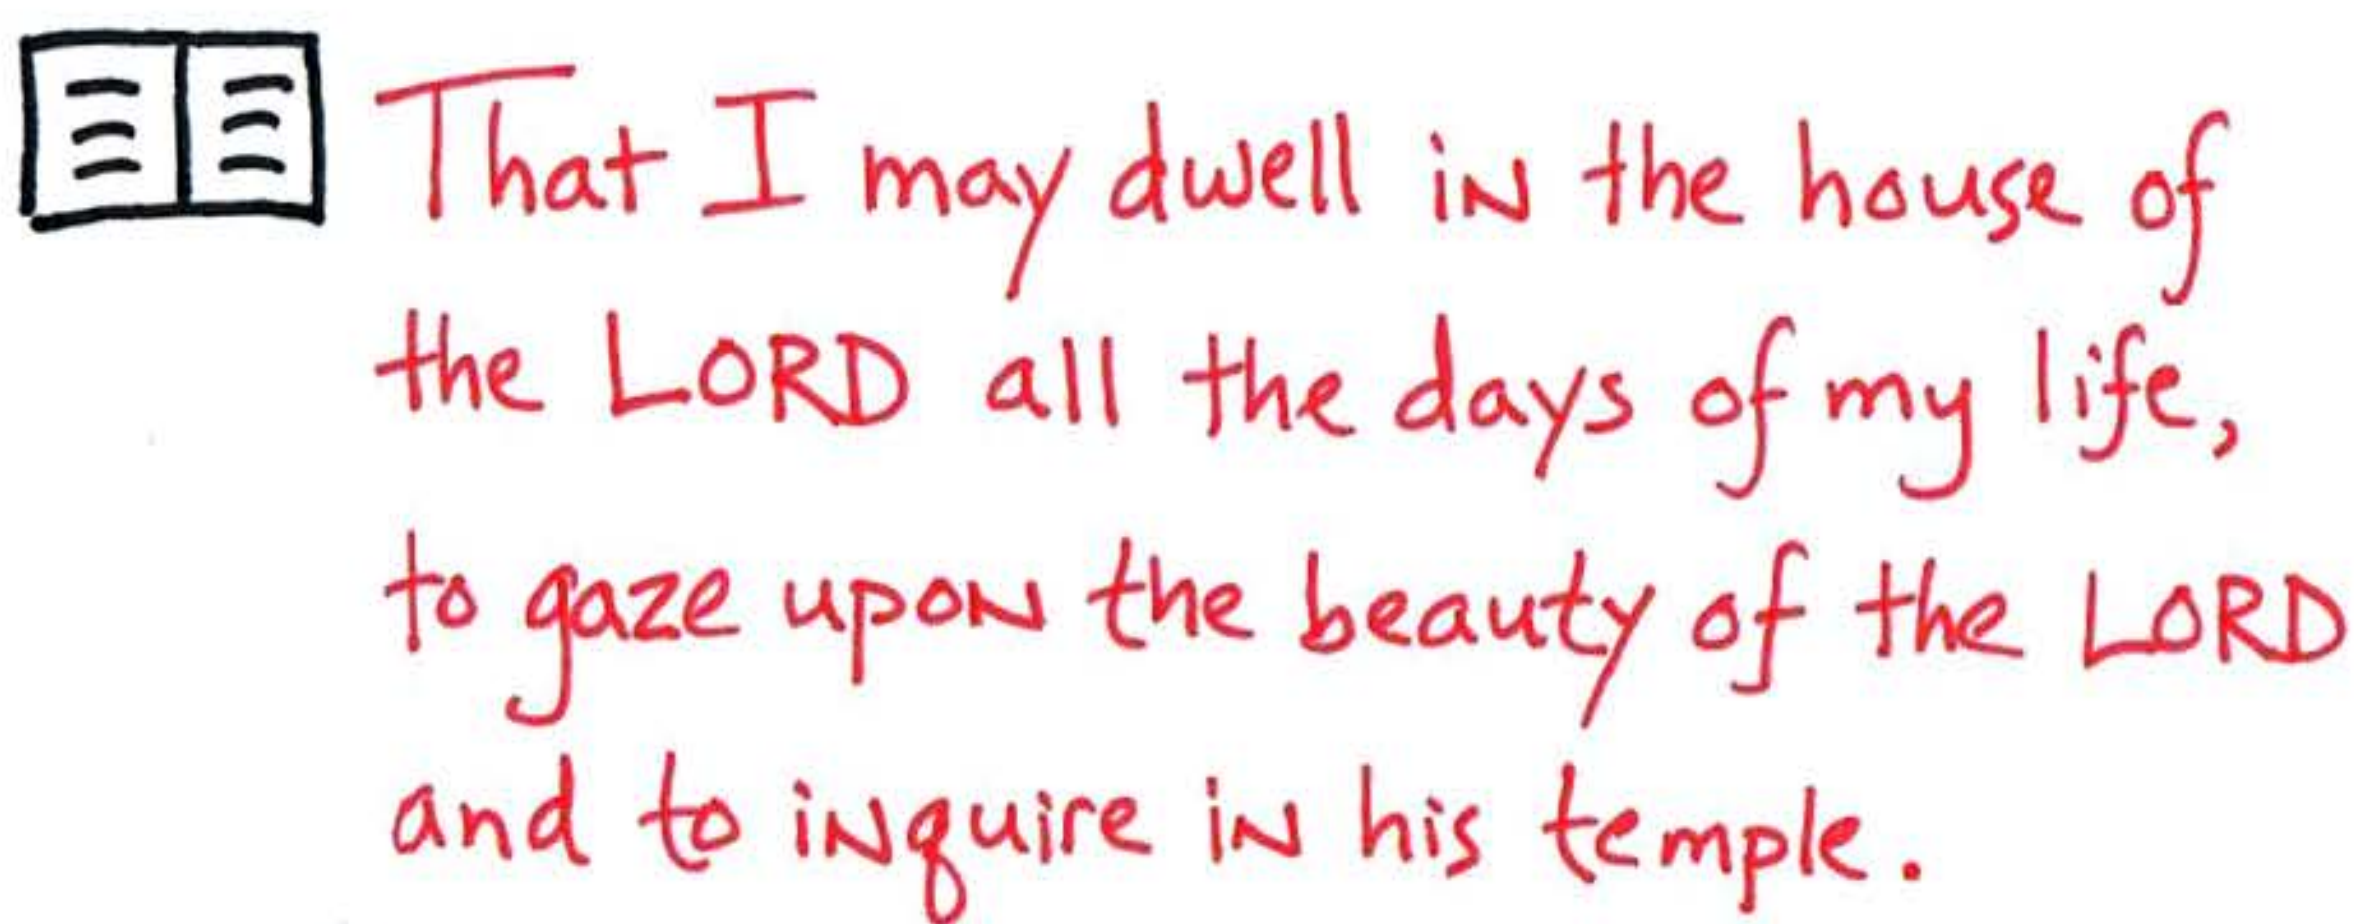 That I may dwell in the house of
the LORD all the days of my life,
to gaze upon the beauty of the LORD
and to inquire in his temple.